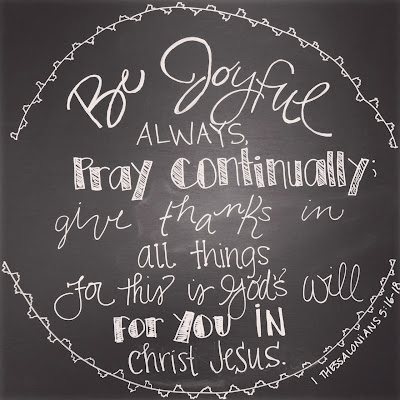 Be Joyful
ALWAYS,
Pray continually;
give thanks in
all things
for this is God's will
FOR YOU IN
Christ Jesus.
1 THESSALONIANS 5:16-18